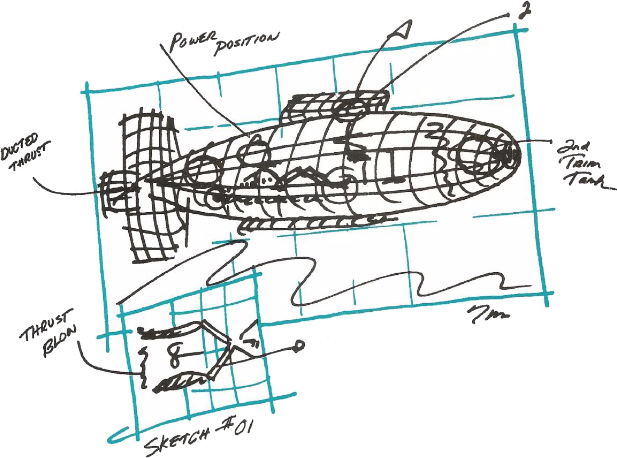 2
POWER POSITION
DUCTED
THRUST
2nd
Trim
Tank
7m
THRUST
BLOW
8
SKETCH #01